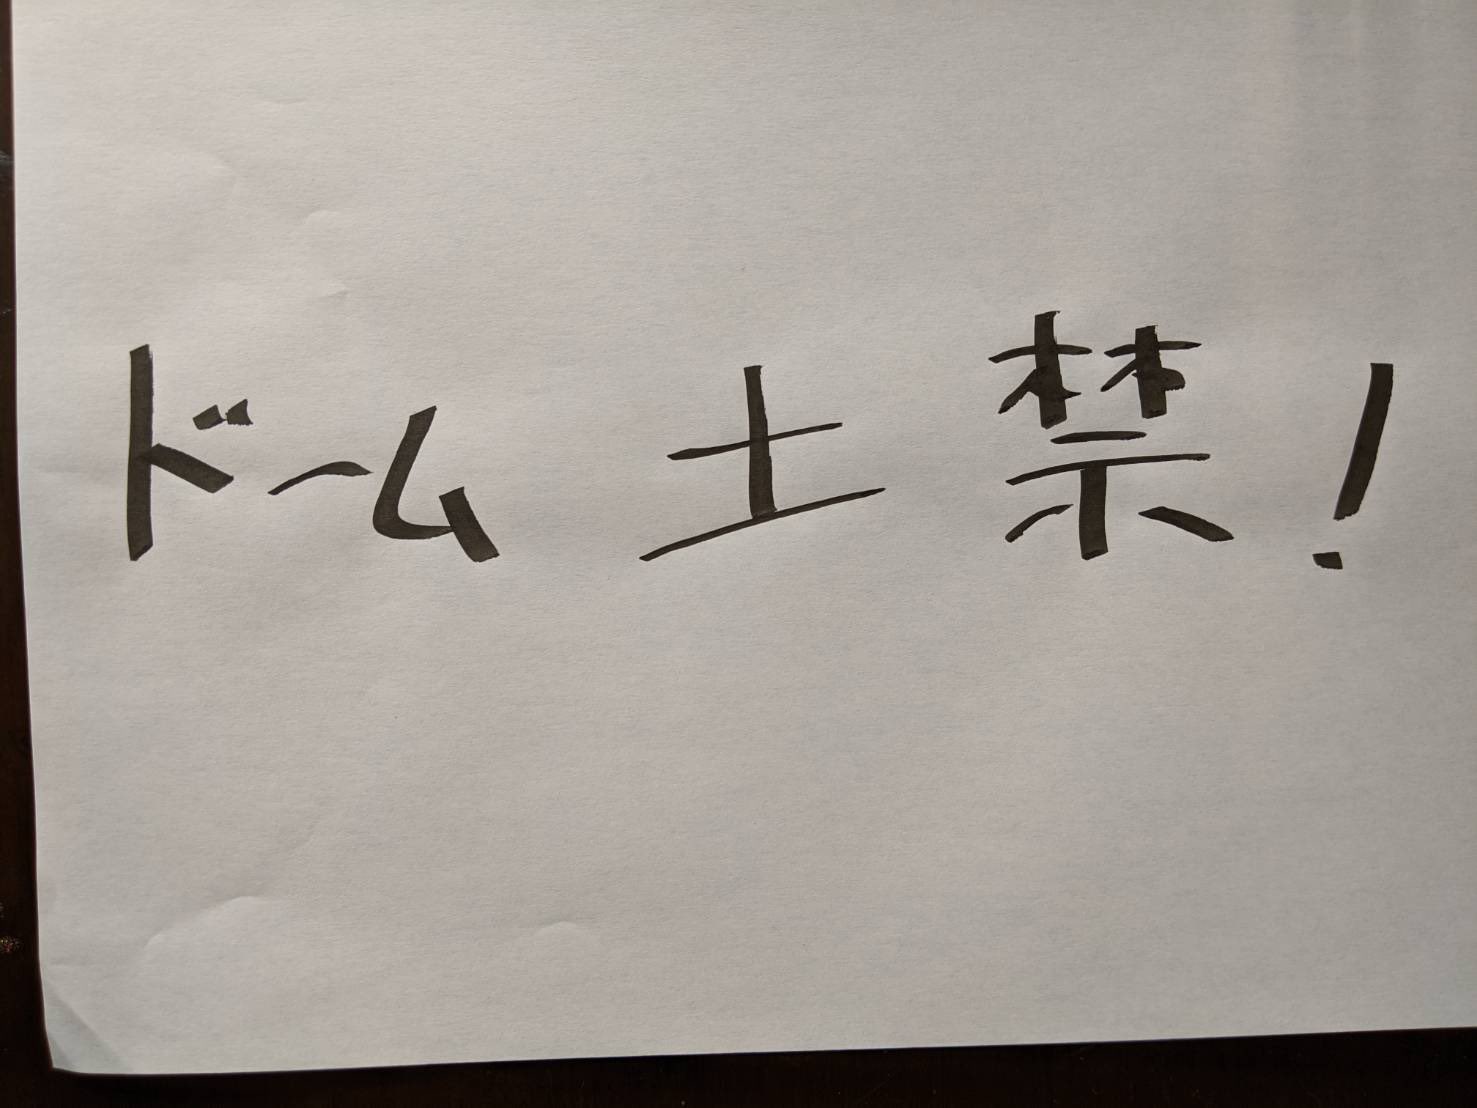 ドーム 土禁!